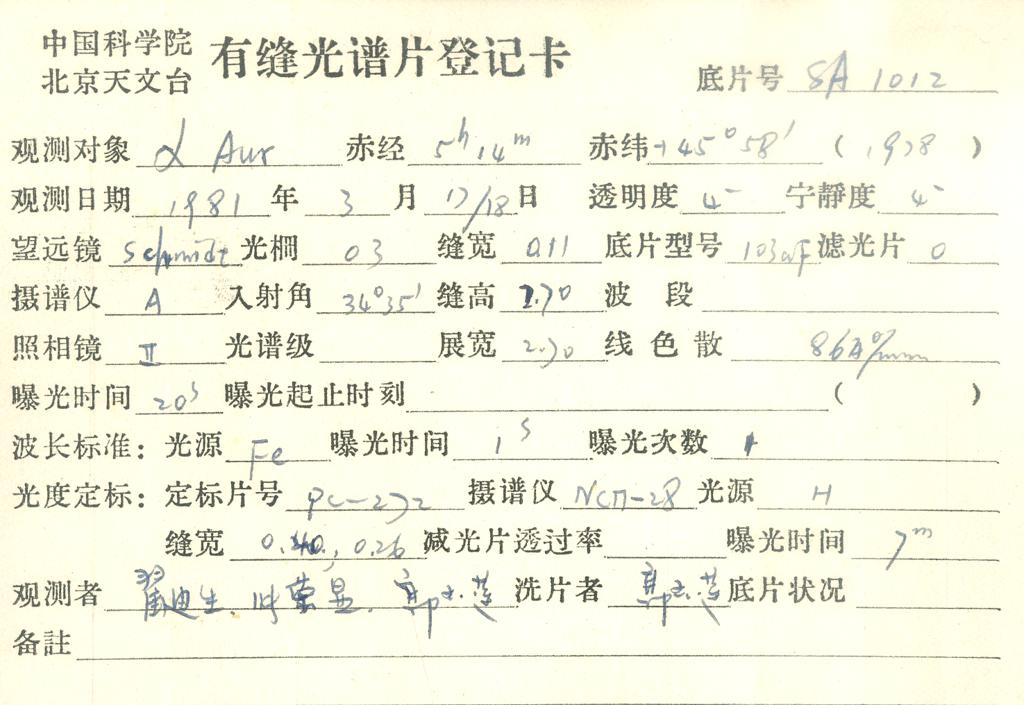 中国科学院
北京天文台
有缝光谱片登记卡
底片号 SA 1012
观测对象 α Aur 赤经 5h 14m 赤纬 +45° 58′ (1978)
观测日期 1981 年 3 月 17/18 日 透明度 4- 宁静度 4-
望远镜 Schmidt 光栅 03 缝宽 0.11 底片型号 103aF 滤光片 0
摄谱仪 A 入射角 34°35′ 缝高 2.70 波段
照相镜 Ⅱ 光谱级 展宽 2.70 线色散 86Å/mm
曝光时间 20s 曝光起止时刻 ( )
波长标准: 光源 Fe 曝光时间 1s 曝光次数 1
光度定标: 定标片号 PC-272 摄谱仪 ИСП-28 光源 H
缝宽 0.40, 0.26 减光片透过率 曝光时间 7m
观测者 翟迪生、叶荣显、郭玉莲 洗片者 郭玉莲 底片状况
备註